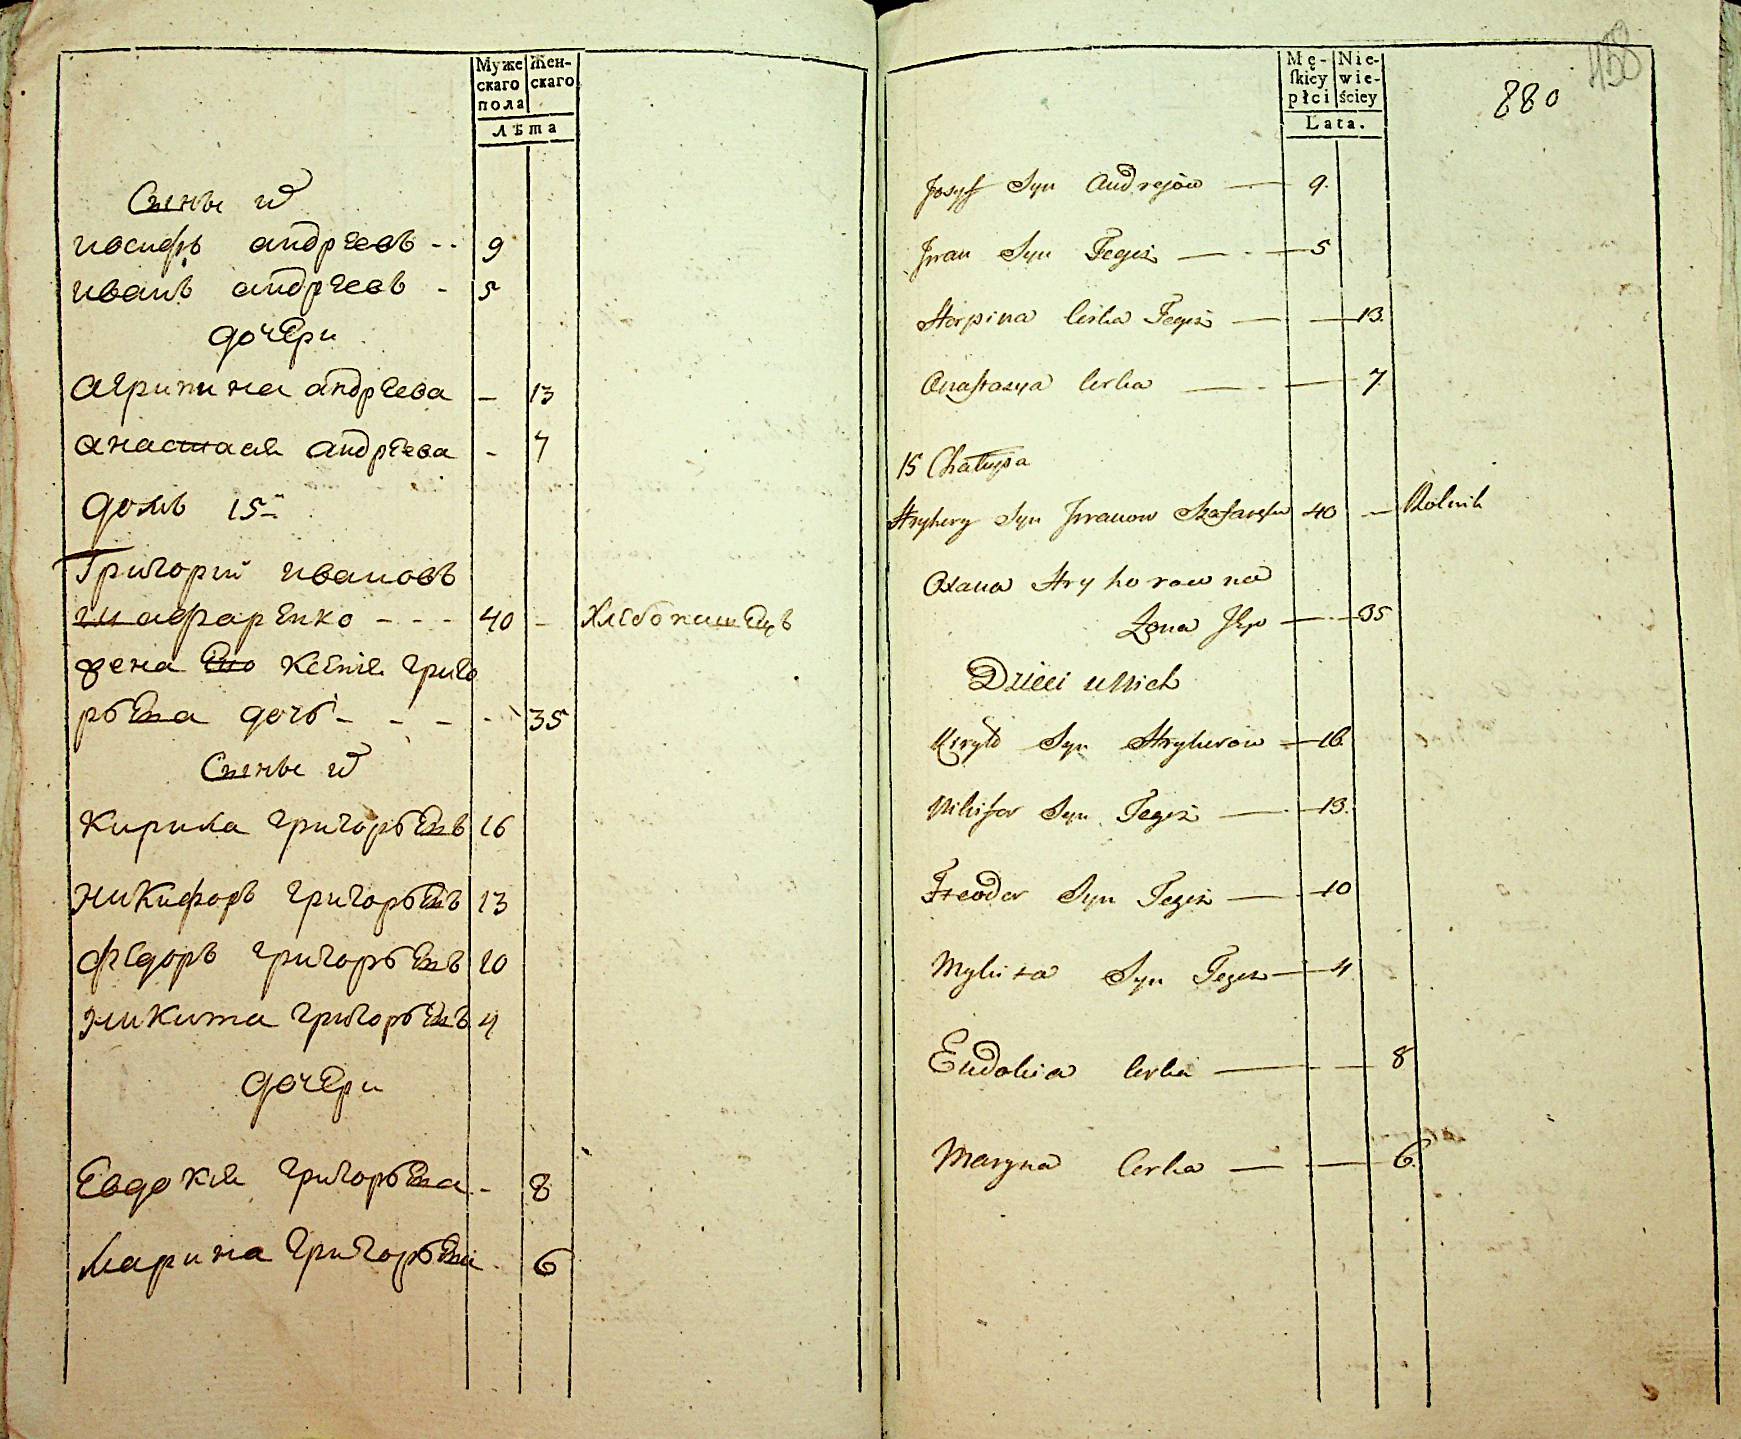 Муже
скаго
пола
Жен-
скаго
лѣта
Сыны
иосифъ андреевъ 9
иванъ андреевъ - 5
дочери
агрипина андреева - 13
анастасия андреева - 7
домъ 15й
Григорий ивановъ
шафаренко - - - 40 - хлебопашецъ
жена ево ксения григо
рьева дочь - - - - 35
Сыны
кирила григорьевъ 16
никифоръ григорьевъ 13
федоръ григорьевъ 10
никита григорьевъ 4
дочери
Евдокия григорьева - 8
марина григорьева - 6
Mę-
skiey
płci
Nie-
wie-
ściey
Lata.
458
880
Josyf Syn Andrejow — 9.
Jwan Syn Tegoż — 5
Horpina Corka Tegoż — 13.
Anastazya Corka — 7
15 Chałupa
Hryhory Syn Jwanow Szafarenko 40 — Rolnik
Oxana Hryhorowna
Żona Jego — 35
Dzieci u Nich
Kiryło Syn Hryhorow — 16.
Nikifor Syn Tegoż — 13.
Fteodor Syn Tegoż — 10
Mykita Syn Tegoż — 4
Eudokia Corka — 8
Maryna Corka — 6.